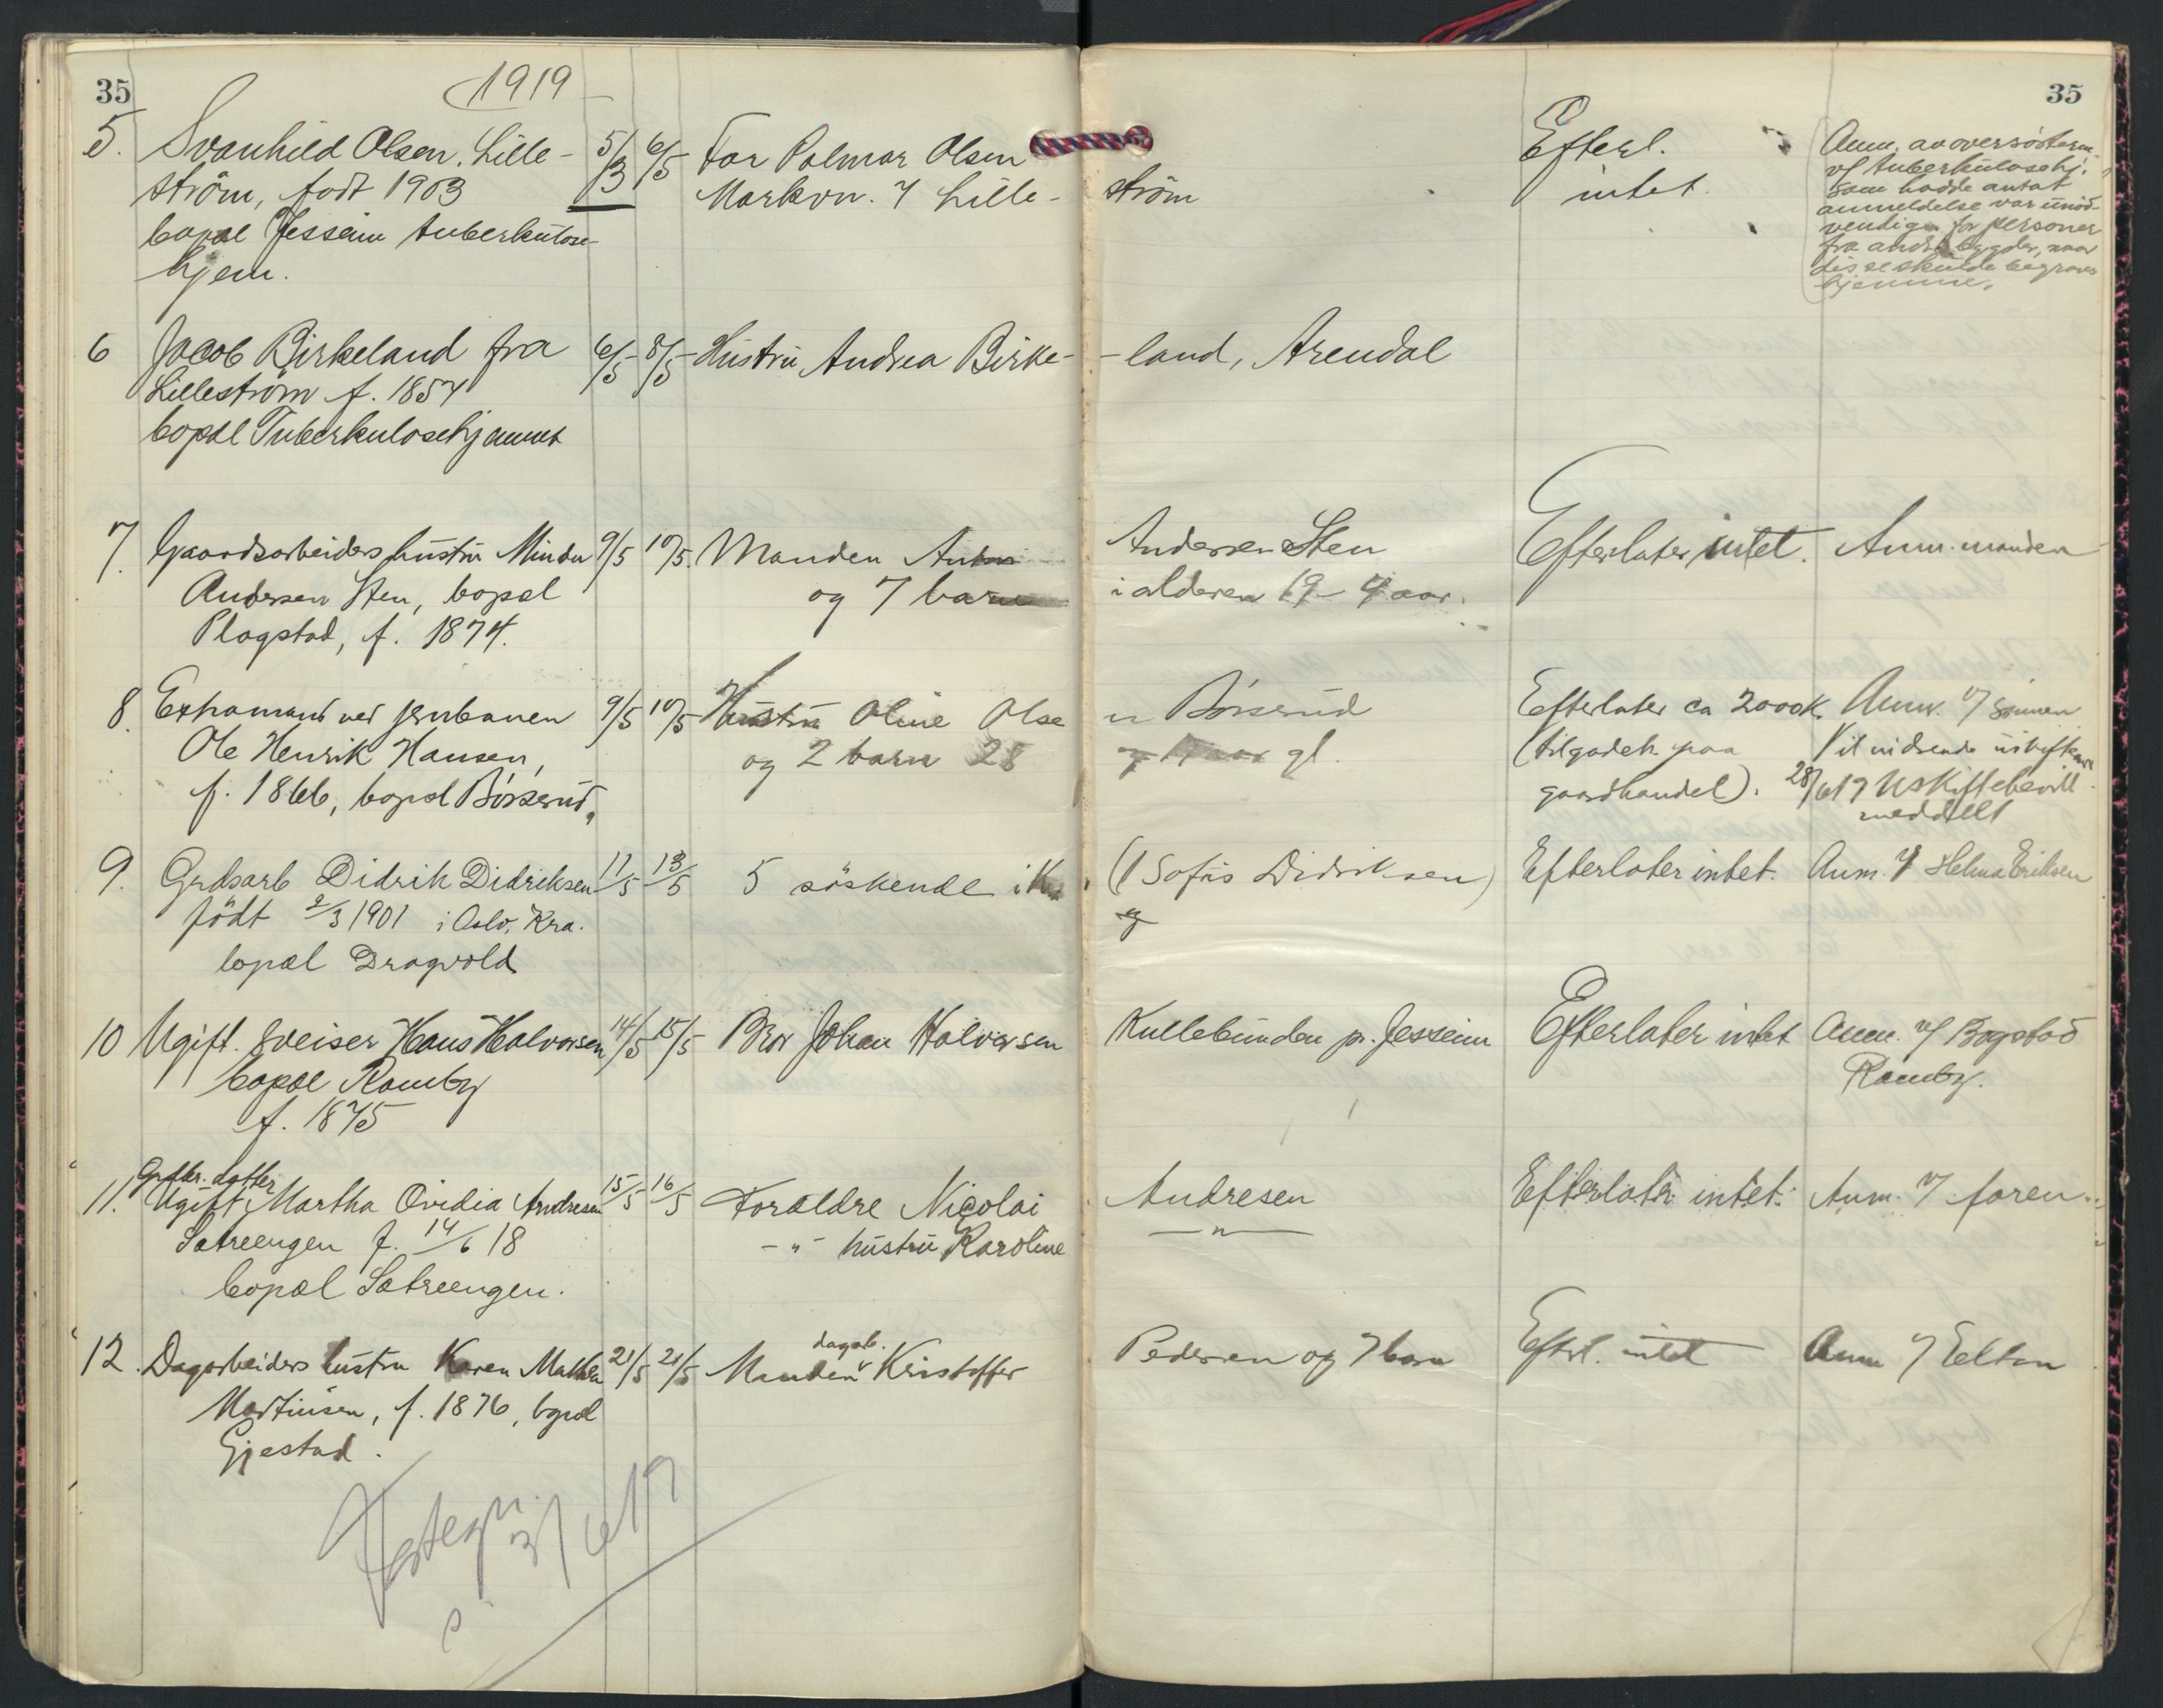 35 1919 35
5. Svanhild Olsen, Lille- 5/3 6/5 Far Palmar Olsen Efterl. Anm. av oversösteren
ström, født 1903 Markvn. 7 Lille- ström intet. v/ tuberkulosehj.
bopæl Jesseim tuberkulose- som hadde antat
hjem. anmeldelse var unöd-
vendig for personer
fra andre bygder, naar
disse skulde begraves
hjemme.
6 Jacob Birkeland fra 6/5 8/5 Hustru Andrea Birke- -land, Arendal
Lilleström f. 1854
bopæl Tuberkulosehjemmet
7. Gaardsarbeiders hustru Minda 9/5 10/5. Manden Andersen Sten Efterlater intet. Anm. manden
Andersen Sten, bopæl og 7 barn i alderen 19 - 4 aar.
Plogstad, f. 1874.
8. Extramand ved jernbanen 9/5 10/5 Hustru Oline Olse n Börserud Efterlater ca 2000k. Anm. v/ sönnen
Ole Henrik Hansen, og 2 barn 28 gl. (tilgodeh. paa Vil indsende
f. 1866, bopæl Börserud. gaardhandel). 28/6 19 Uskiftebevill.
meddelt
9. Grdsarb Didrik Didriksen 11/5 13/5 5 söskende i (1 Sofus Didriksen) Efterlater intet. Anm. v/ Helma Eriksen
födt 2/3 1901 i Oslo, Kra. og
bopæl Dragvold
10 Ugift. sveiser Hans Halvorsen 14/5 15/5 Bror Johan Halvorsen Kullebunden p. Jesseim Efterlater intet Anm. v/ Bogstad
bopæl Ramby Ramby.
f. 1875
datter
11. Ugift Martha Ovidia Andresen 15/5 16/5 Foraldre Nicolai Andresen Efterlater intet. Anm. v/ faren.
Sætreengen f. 14/6 18 - " - hustru Karoline - " -
bopæl Sætreengen.
dagarb.
12. Dagarbeiders hustru Karen Mathea 21/5 21/5 Manden Kristoffer Pedersen og 7 barn Efterl. intet Anm v/ Eltun
Martinsen, f. 1876, bopæl
Gjestad.
3/6 19